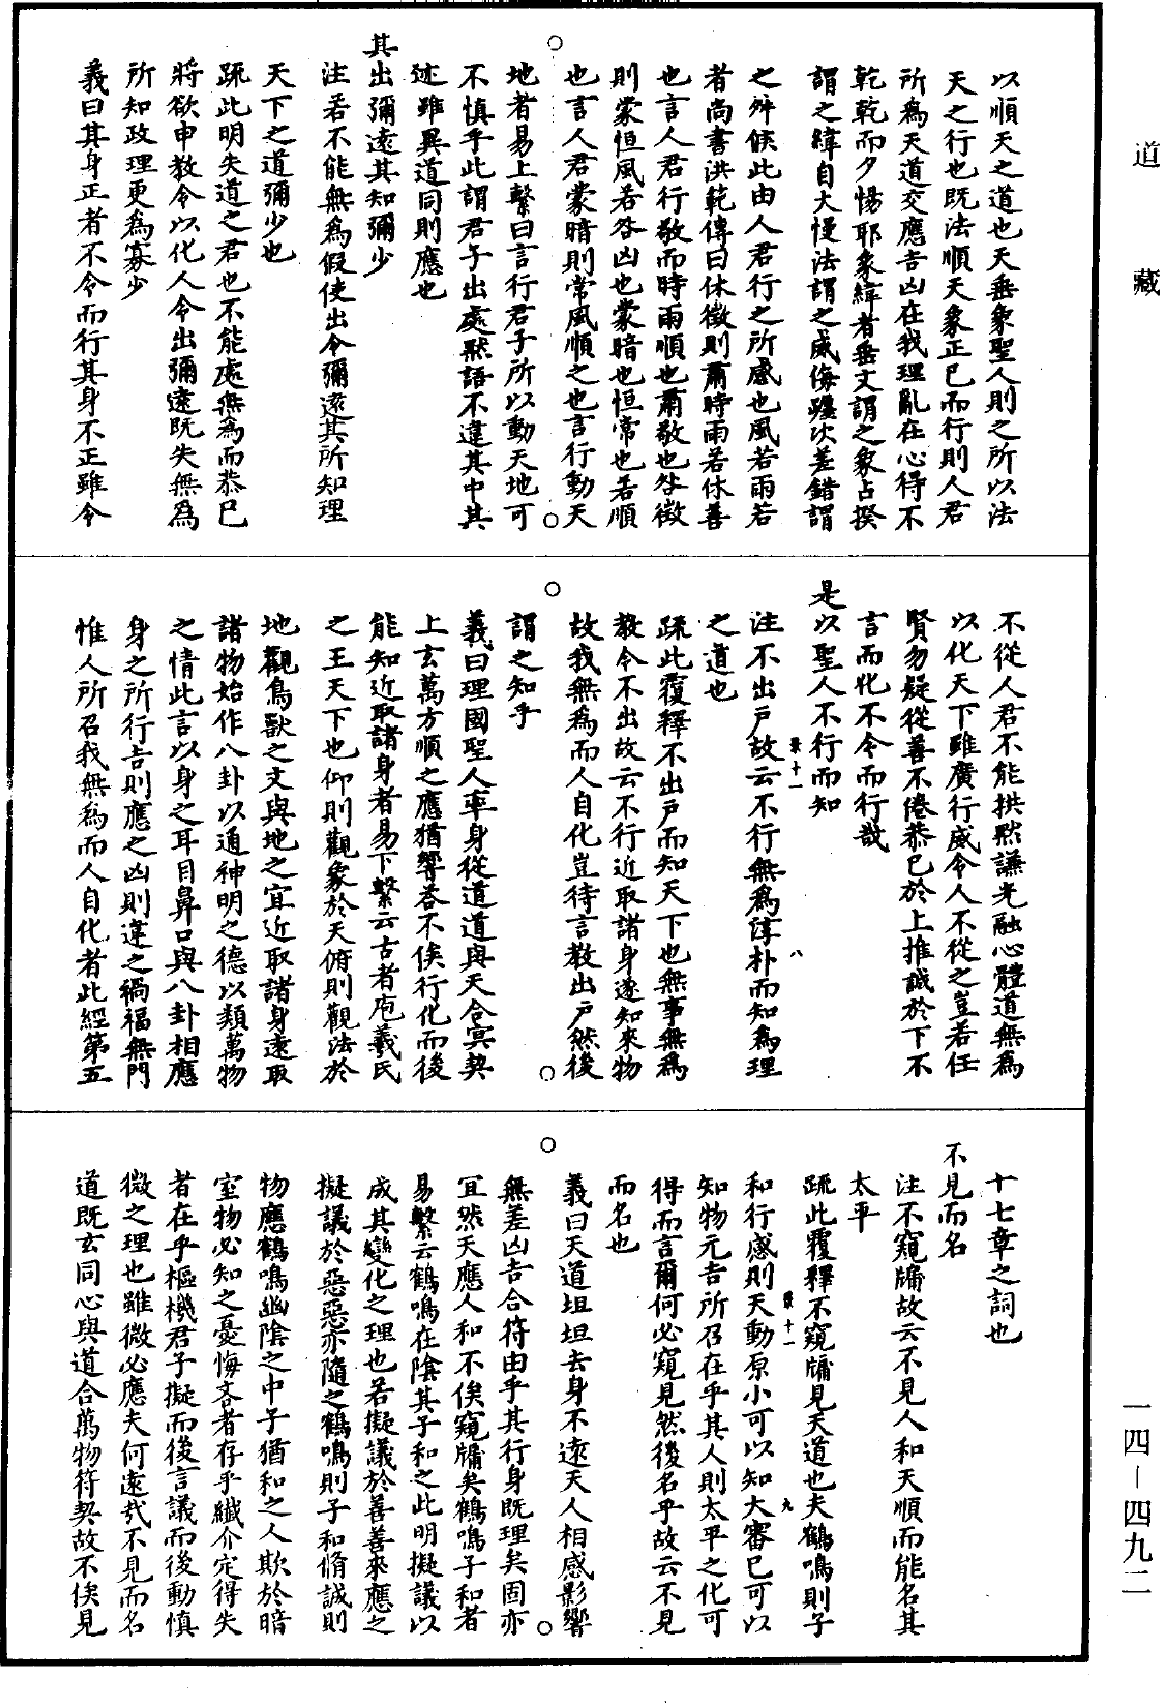 道藏
以順天之道也天垂象聖人則之所以法
天之行也既法順天象正已而行則人君
所為天道交應吉凶在我理亂在心得不
乾乾而夕惕耶象緯者垂文謂之象占揆
謂之緯自大慢法謂之威侮躔次差錯謂
之舛候此由人君行之所感也風若雨若
者尚書洪範傳曰休徵則肅時雨若休善
也言人君行敬而時雨順也肅敬也咎徵
則蒙恒風若咎凶也蒙暗也恒常也若順
也言人君蒙暗則常風順之也言行動天
地者易上繫曰言行君子所以動天地可
不慎乎此謂君子出處默語不違其中其
迹雖異道同則應也
其出彌遠其知彌少
注若不能無為假使出令彌遠其所知理
天下之道彌少也
疏此明失道之君也不能處無為而恭已
將欲申教令以化人令出彌遠既失無為
所知政理更為寡少
義曰其身正者不令而行其身不正雖令
不從人君不能拱默謙光融心體道無為
以化天下雖廣行威令人不從之豈若任
賢勿疑從善不倦恭已於上推誠於下不
言而化不令而行哉
是以聖人不行而知
注不出戶故云不行無為淳朴而知為理
之道也
疏此覆釋不出戶而知天下也無事無為
教令不出故云不行近取諸身遂知來物
故我無為而人自化豈待言教出戶然後
謂之知乎
義曰理國聖人率身從道道與天合冥契
上玄萬方順之應猶響荅不俟行化而後
能知近取諸身者易下繫云古者庖羲氏
之王天下也仰則觀象於天俯則觀法於
地觀鳥獸之文與地之宜近取諸身遠取
諸物始作八卦以通神明之德以類萬物
之情此言以身之耳目鼻口與八卦相應
身之所行吉則應之凶則違之禍福無門
惟人所召我無為而人自化者此經第五
十七章之詞也
不見而名
注不窺牖故云不見人和天順而能名其
太平
疏此覆釋不窺牖見天道也夫鶴鳴則子
和行感則天動原小可以知大審已可以
知物元吉所召在乎其人則太平之化可
得而言爾何必窺見然後名乎故云不見
而名也
義曰天道坦坦去身不遠天人相感影響
無差凶吉合符由乎其行身既理矣固亦
宜然天應人和不俟窺牖矣鶴鳴子和者
易繫云鶴鳴在陰其子和之此明擬議以
成其變化之理也若擬議於善善來應之
擬議於惡惡亦隨之鶴鳴則子和脩誠則
物應鶴鳴幽陰之中子猶和之人欺於暗
室物必知之憂悔吝者存乎纖介定得失
者在乎樞機君子擬而後言議而後動慎
微之理也雖微必應夫何遠哉不見而名
道既玄同心與道合萬物符契故不俟見
一四—四九二